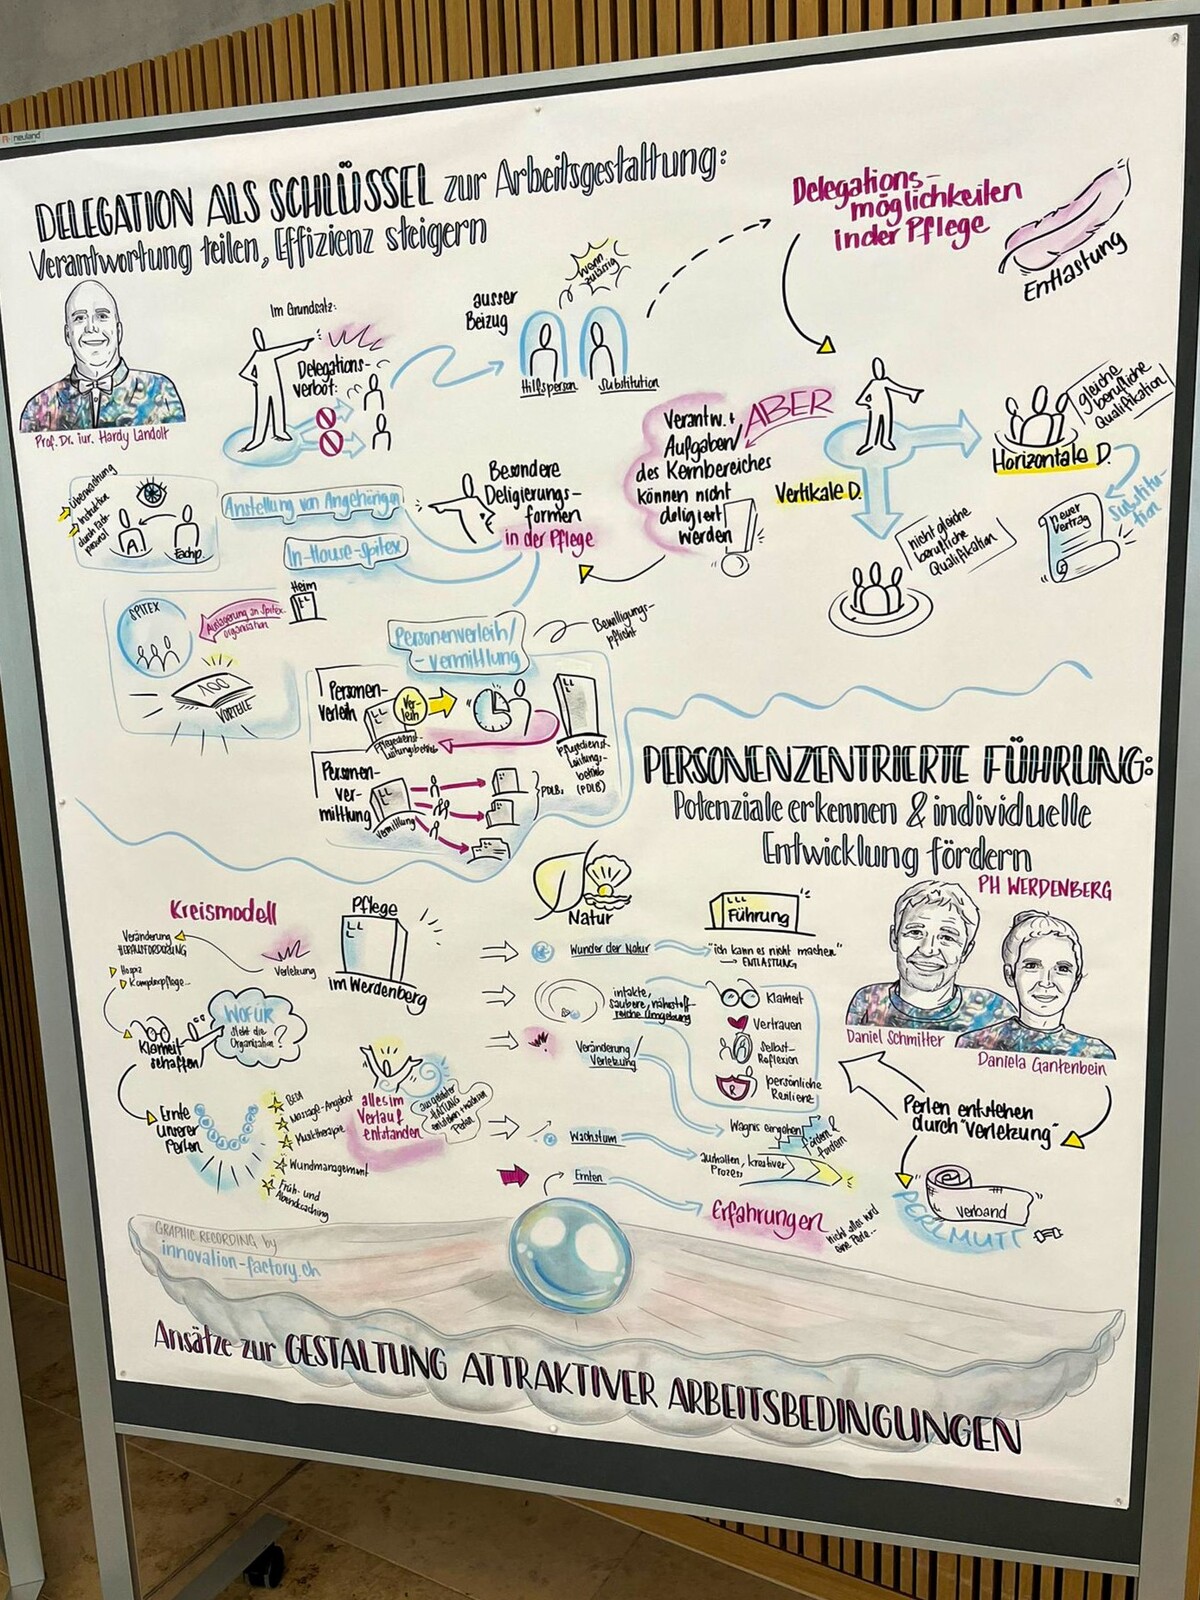 neuland
DELEGATION ALS SCHLÜSSEL zur Arbeitsgestaltung:
Verantwortung teilen, Effizienz steigern
Prof. Dr. iur. Hardy Landolt
Im Grundsatz:
Delegations-
verbot:
ausser
Beizug
wenn
zulässig
Hilfsperson
Substitution
Delegations-
möglichkeiten
in der Pflege
Entlastung
Verantw. +
Aufgaben
des Kernbereiches
können nicht
deligiert
werden
ABER
Vertikale D.
Horizontale D.
gleiche
berufliche
Qualifikation
Substitu-
tion
neuer
Vertrag
nicht gleiche
berufliche
Qualifikation
Besondere
Deligierungs-
formen
in der Pflege
Überwachung
Instruktion
durch Fach-
personal
A.
Fachp.
Anstellung von Angehörigen
In-House-Spitex
SPITEX
Auslagerung an Spitex-
organisation
Heim
100
VORTEILE
Personenverleih/
-vermittlung
Bewilligungs-
pflicht
Personen-
verleih
Ver-
leih
Pflegedienst-
leistungsbetrieb
Pflegedienst-
leistungs-
betrieb
(PDLB)
Personen-
ver-
mittlung
Vermittlung
PDLB:
PERSONENZENTRIERTE FÜHRUNG:
Potenziale erkennen & individuelle
Entwicklung fördern
PH WERDENBERG
Daniel Schmitter
Daniela Gantenbein
Kreismodell
Veränderung
HERAUSFORDERUNG
Verletzung
Hospiz
Komplexpflege...
Klarheit
schaffen
WOFÜR
steht die
Organisation?
Ernte
unserer
Perlen
BESA
Massage-Angebot
Musiktherapie
Wundmanagement
Früh- und
Abendcoaching
Pflege
im Werdenberg
alles im
Verlauf
entstanden
aus gelebter
HALTUNG
entstehen + wachsen
Perlen
Natur
Führung
Wunder der Natur
"ich kann es nicht machen"
→ ENTLASTUNG
intakte,
saubere, nährstoff-
reiche Umgebung
Klarheit
Vertrauen
Selbst-
Reflexion
persönliche
Resilienz
Veränderung/
Verletzung
Wachstum
Wagnis eingehen
fördern &
fordern
aushalten, kreativer
Prozess
Ernten
Erfahrungen
nicht alles wird
eine Perle...
Perlen entstehen
durch "Verletzung"
Verband
PERLMUTT
GRAPHIC RECORDING by
innovation-factory.ch
Ansätze zur GESTALTUNG ATTRAKTIVER ARBEITSBEDINGUNGEN